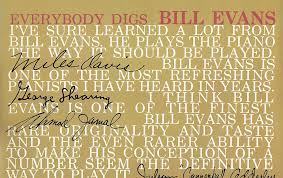 EVERYBODY DIGS BILL EVANS
I'VE SURE LEARNED A LOT FROM
BILL EVANS. HE PLAYS THE PIANO
THE WAY IT SHOULD BE PLAYED.
Miles Davis BILL EVANS IS
ONE OF THE MOST REFRESHING
PIANISTS I HAVE HEARD IN YEARS.
George Shearing I THINK BILL
EVANS IS ONE OF THE FINEST
Ahmad Jamal BILL EVANS HAS
RARE ORIGINALITY AND TASTE
AND EVEN RARER ABILITY
TO MAKE HIS CONCEPTION OF A
NUMBER SEEM THE DEFINITIVE
WAY TO PLAY IT Julian Cannonball Adderley